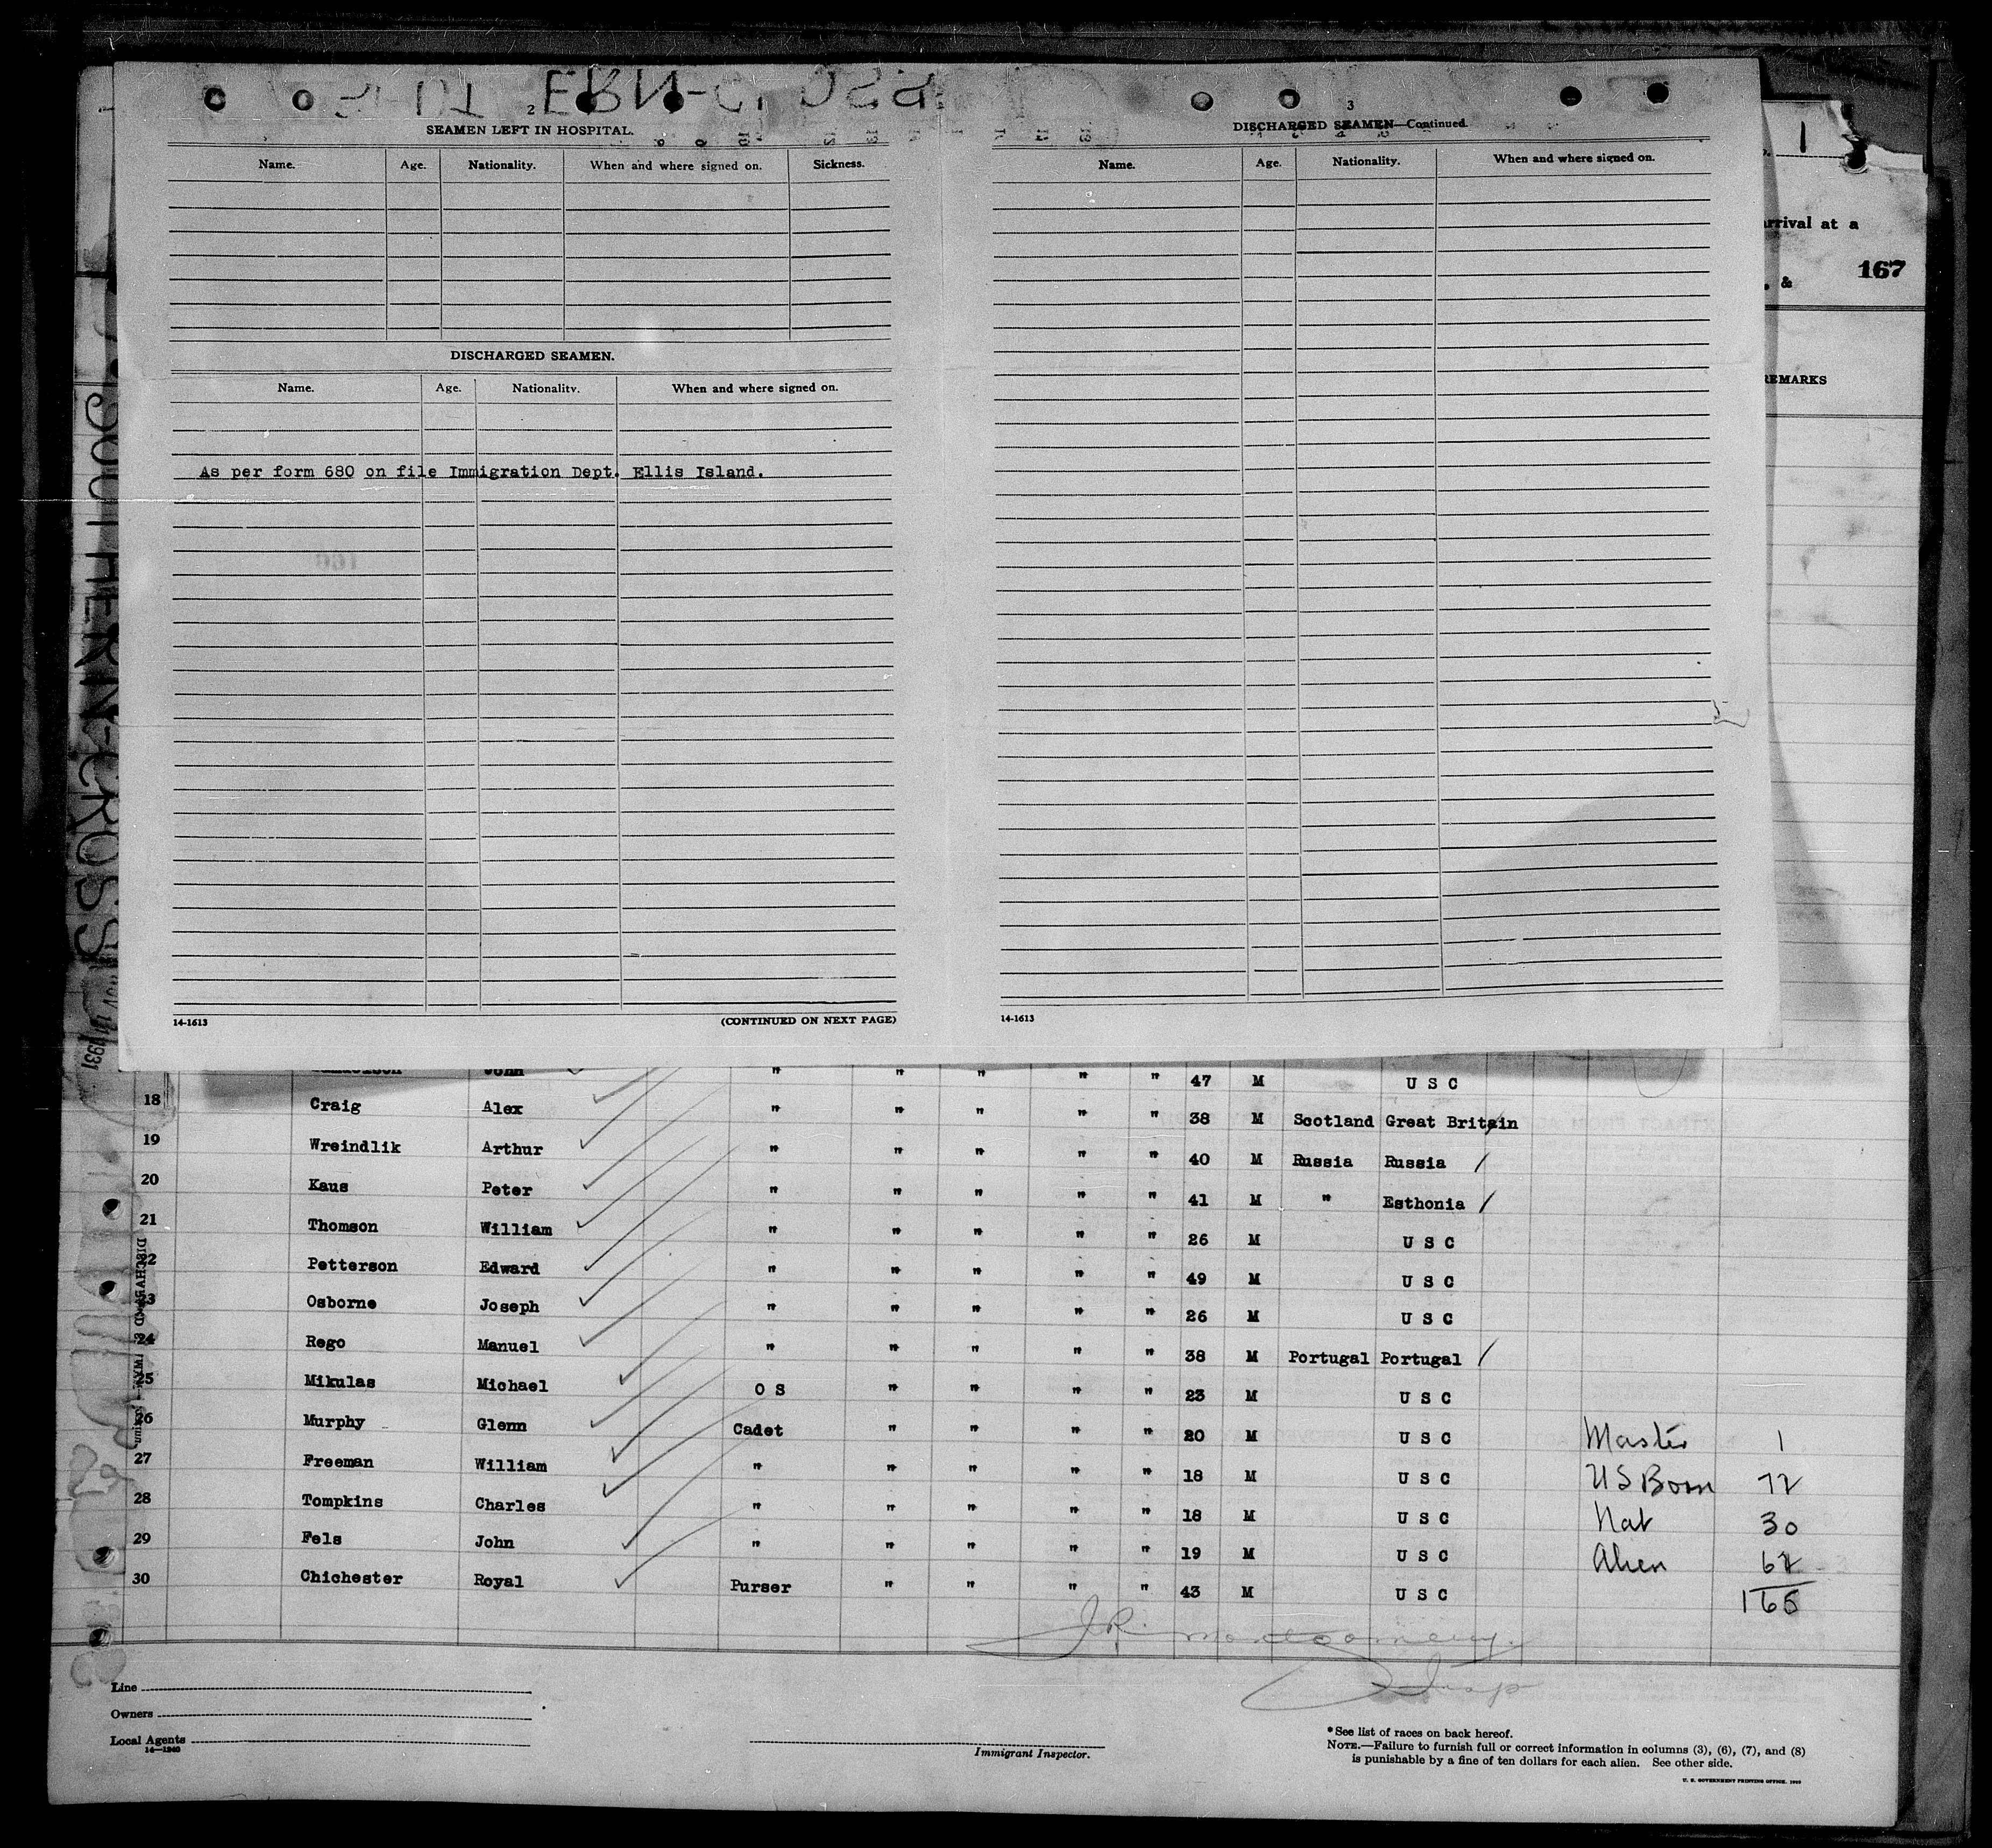 2
SEAMEN LEFT IN HOSPITAL.
Name. Age. Nationality. When and where signed on. Sickness.
DISCHARGED SEAMEN.
Name. Age. Nationality. When and where signed on.
As per form 680 on file Immigration Dept. Ellis Island.
14-1613 (CONTINUED ON NEXT PAGE)
3
DISCHARGED SEAMEN—Continued.
Name. Age. Nationality. When and where signed on.
14-1613
1
arrival at a
& 167
REMARKS
SOUTHERN-CROSS
1931
John " " " " " 47 M U S C
18 Craig Alex " " " " " 38 M Scotland Great Britain
19 Wreindlik Arthur " " " " " 40 M Russia Russia /
20 Kaus Peter " " " " " 41 M " Esthonia /
21 Thomson William " " " " " 26 M U S C
22 Petterson Edward " " " " " 49 M U S C
23 Osborne Joseph " " " " " 26 M U S C
24 Rego Manuel " " " " " 38 M Portugal Portugal /
25 Mikulas Michael O S " " " " 23 M U S C
26 Murphy Glenn Cadet " " " " 20 M U S C Master 1
27 Freeman William " " " " " 18 M U S C US Born 72
28 Tompkins Charles " " " " " 18 M U S C Nat 30
29 Fels John " " " " " 19 M U S C Alien 62
30 Chichester Royal Purser " " " " 43 M U S C 165
J.R. Montgomery.
Insp
Line
Owners
Local Agents
14—1240
Immigrant Inspector.
*See list of races on back hereof.
NOTE.—Failure to furnish full or correct information in columns (3), (6), (7), and (8)
is punishable by a fine of ten dollars for each alien. See other side.
U. S. GOVERNMENT PRINTING OFFICE.